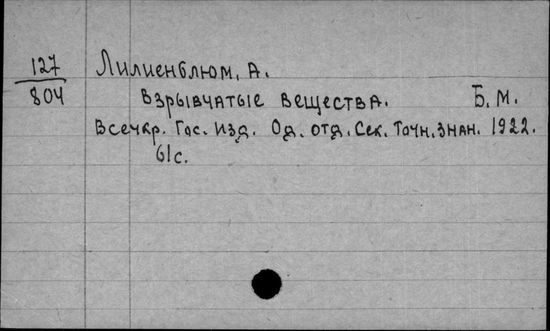 127 Лилиенблюм, А.
804 Взрывчатые вещества. Б. м.
Всеукр. Гос. Изд. Од. отд. Сек. Точн. знан. 1922.
61 с.